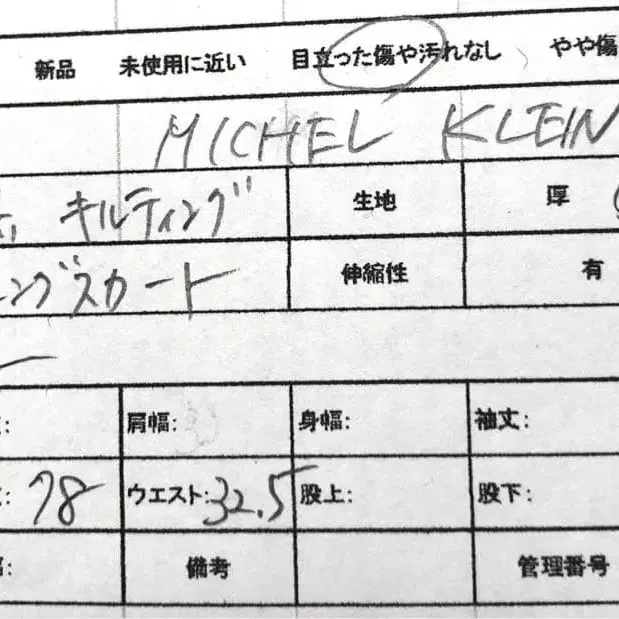 新品 未使用に近い 目立った傷や汚れなし やや傷
MICHEL KLEIN
キルティング 生地 厚
ングスカート 伸縮性 有
肩幅: 身幅: 袖丈:
78 ウエスト:32.5 股上: 股下:
備考 管理番号